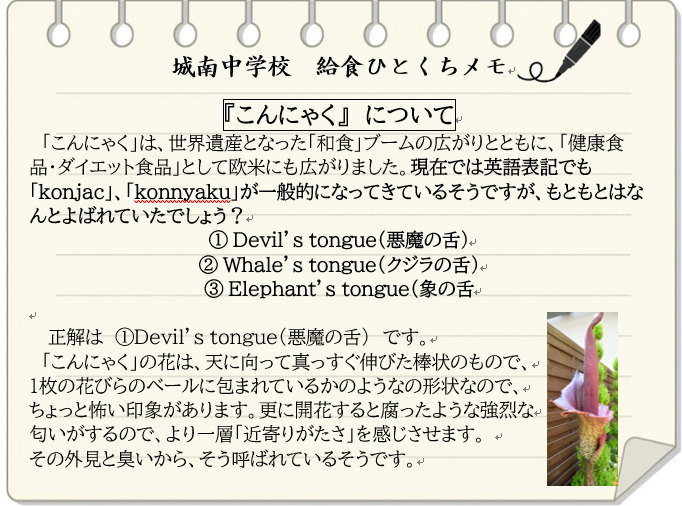 城南中学校　給食ひとくちメモ
『こんにゃく』 について
「こんにゃく」は、世界遺産となった「和食」ブームの広がりとともに、「健康食
品・ダイエット食品」として欧米にも広がりました。現在では英語表記でも
「konjac」、「konnyaku」が一般的になってきているそうですが、もともとはな
んとよばれていたでしょう？
① Devil’s tongue（悪魔の舌）
② Whale’s tongue（クジラの舌）
③ Elephant’s tongue（象の舌
正解は ①Devil’s tongue（悪魔の舌） です。
「こんにゃく」の花は、天に向って真っすぐ伸びた棒状のもので、
1枚の花びらのベールに包まれているかのようなの形状なので、
ちょっと怖い印象があります。更に開花すると腐ったような強烈な
匂いがするので、より一層「近寄りがたさ」を感じさせます。
その外見と臭いから、そう呼ばれているそうです。